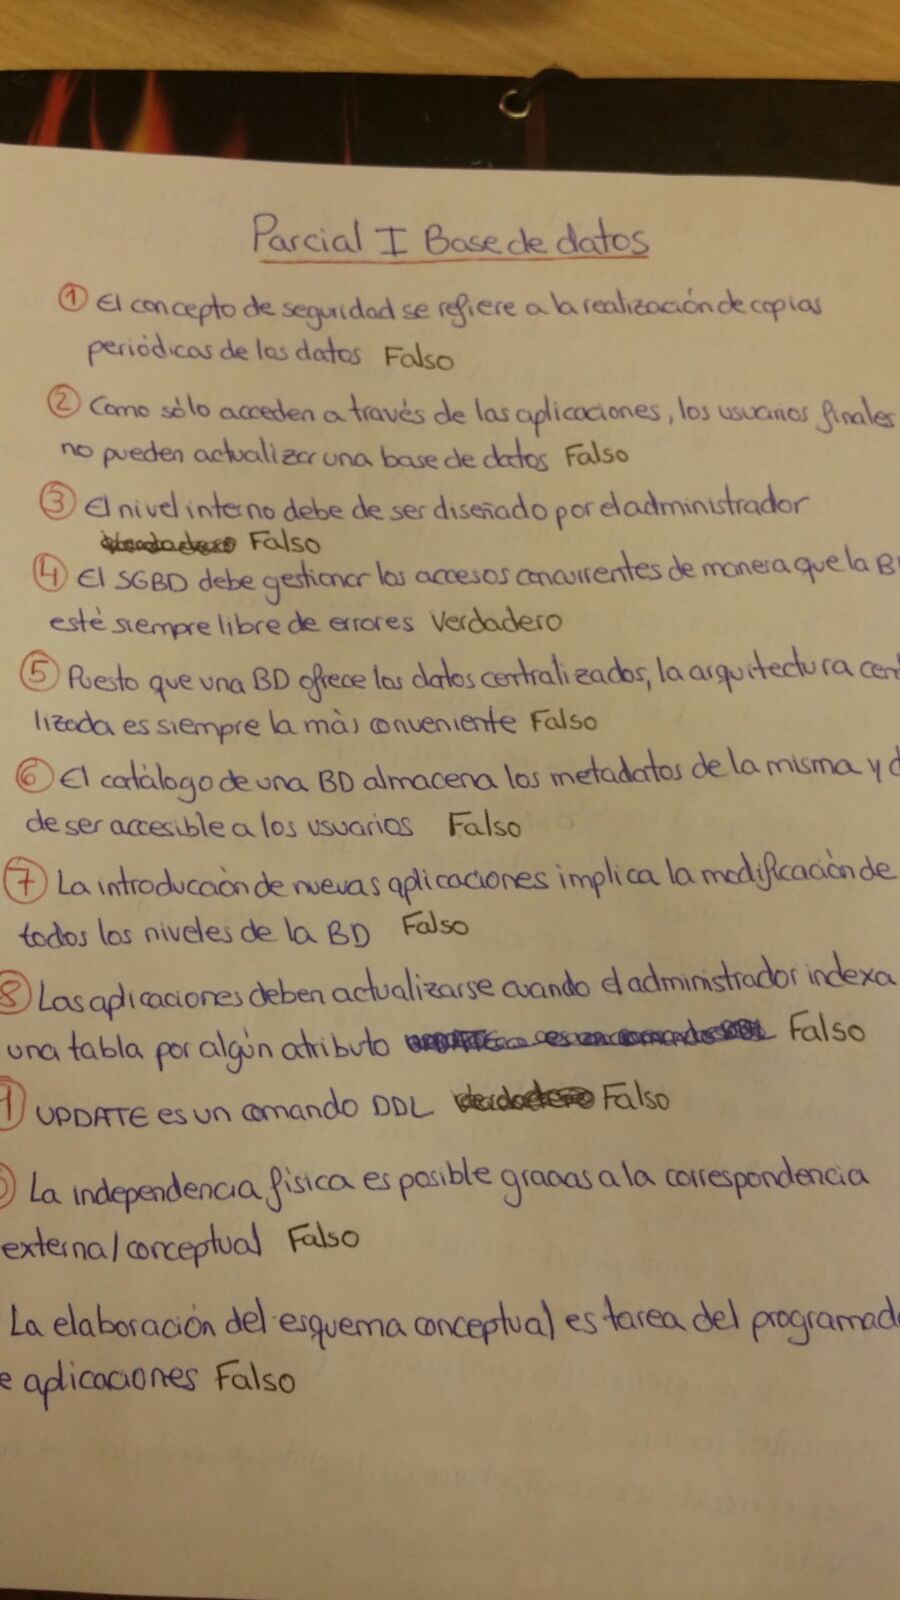 Parcial I Base de datos
① El concepto de seguridad se refiere a la realización de copias
periódicas de los datos Falso
② Como sólo acceden a través de las aplicaciones, los usuarios finales
no pueden actualizar una base de datos Falso
③ El nivel interno debe de ser diseñado por el administrador
Falso
④ El SGBD debe gestionar los accesos concurrentes de manera que la B
esté siempre libre de errores Verdadero
⑤ Puesto que una BD ofrece los datos centralizados, la arquitectura cent
lizada es siempre la más conveniente Falso
⑥ El catálogo de una BD almacena los metadatos de la misma y d
de ser accesible a los usuarios Falso
⑦ La introducción de nuevas aplicaciones implica la modificación de
todos los niveles de la BD Falso
8 Las aplicaciones deben actualizarse cuando el administrador indexa
una tabla por algún atributo Falso
UPDATE es un comando DDL Falso
La independencia física es posible gracias a la correspondencia
externa/conceptual Falso
La elaboración del esquema conceptual es tarea del programad
e aplicaciones Falso